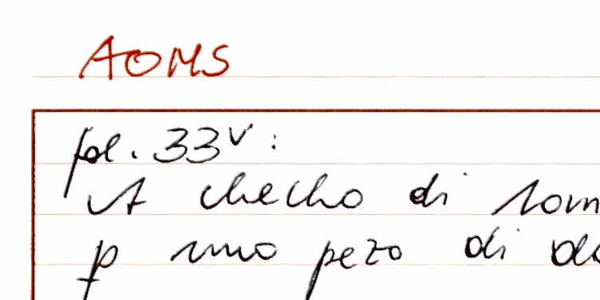 AOMS
fol. 33v:
A checho di
p uno pezo di